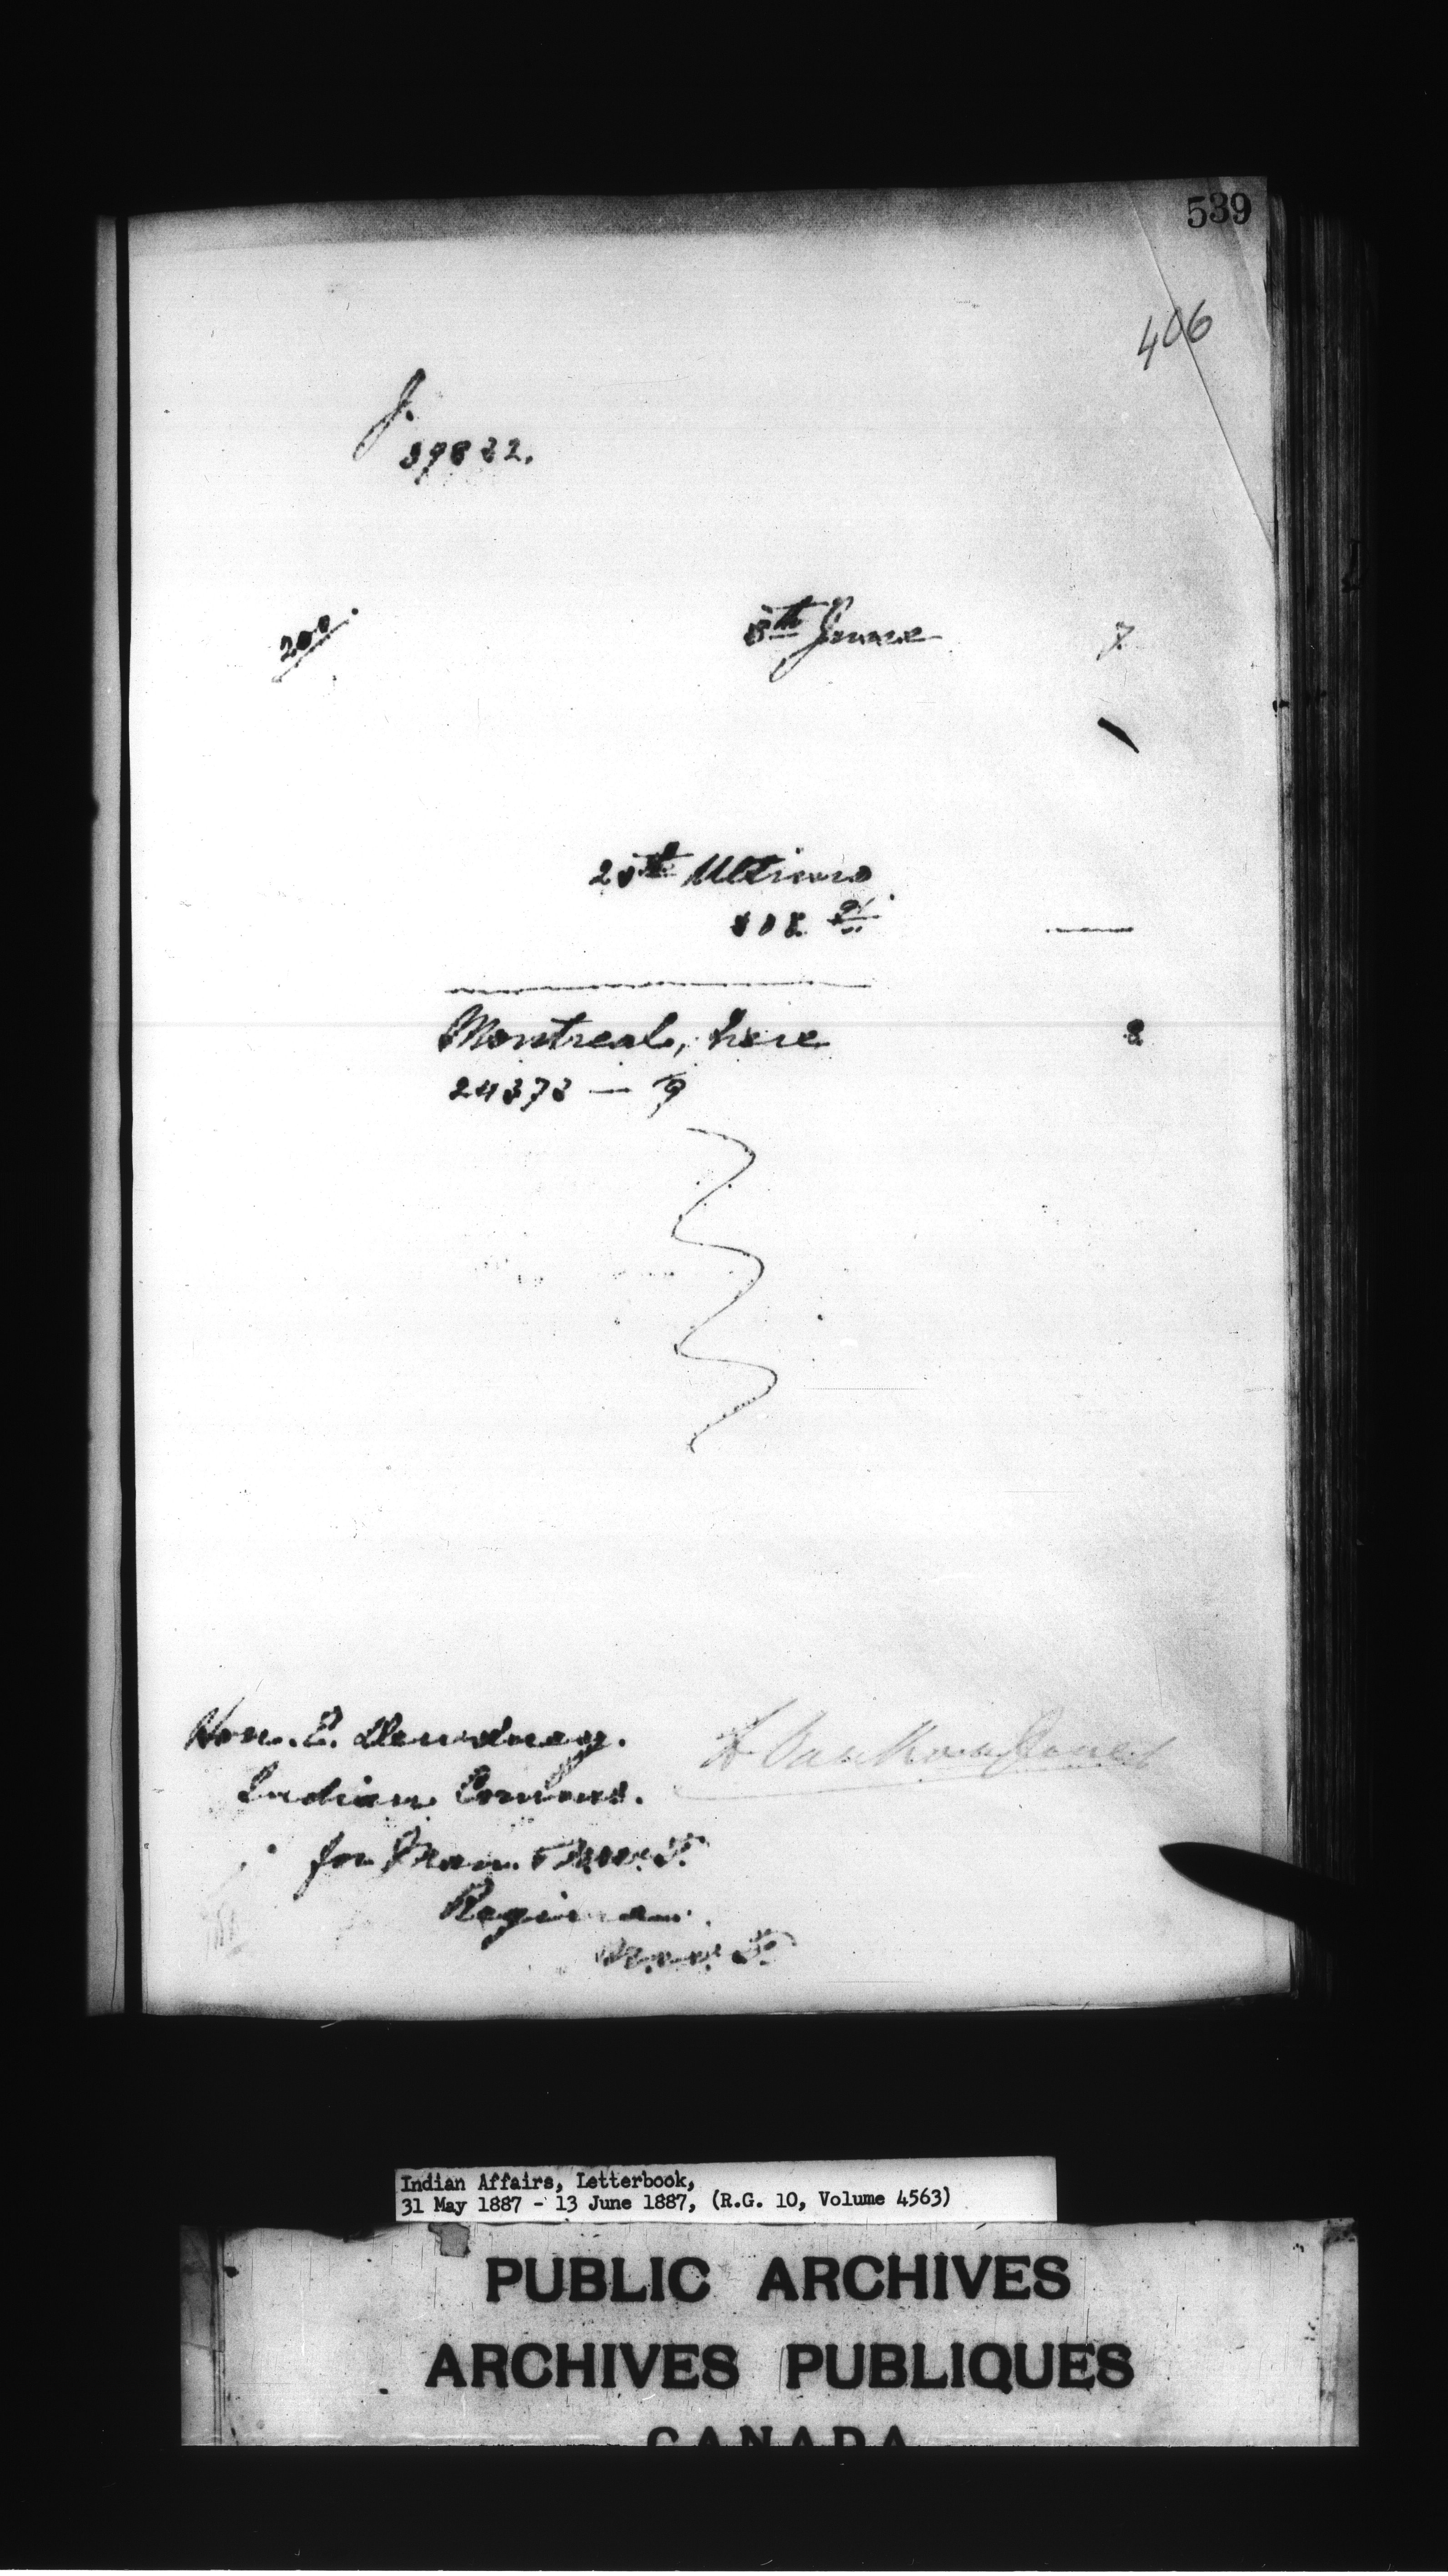 539
406
J.
39822.
200.
8th June 7
25th Ultimo
Montreal, here 2
24373 — 9
Hon. E. Dewdney.
Indian Commr.
for Man. & N.W.T.
Regina.
N.W.T.
Indian Affairs, Letterbook,
31 May 1887 - 13 June 1887, (R.G. 10, Volume 4563)
PUBLIC ARCHIVES
ARCHIVES PUBLIQUES
CANADA